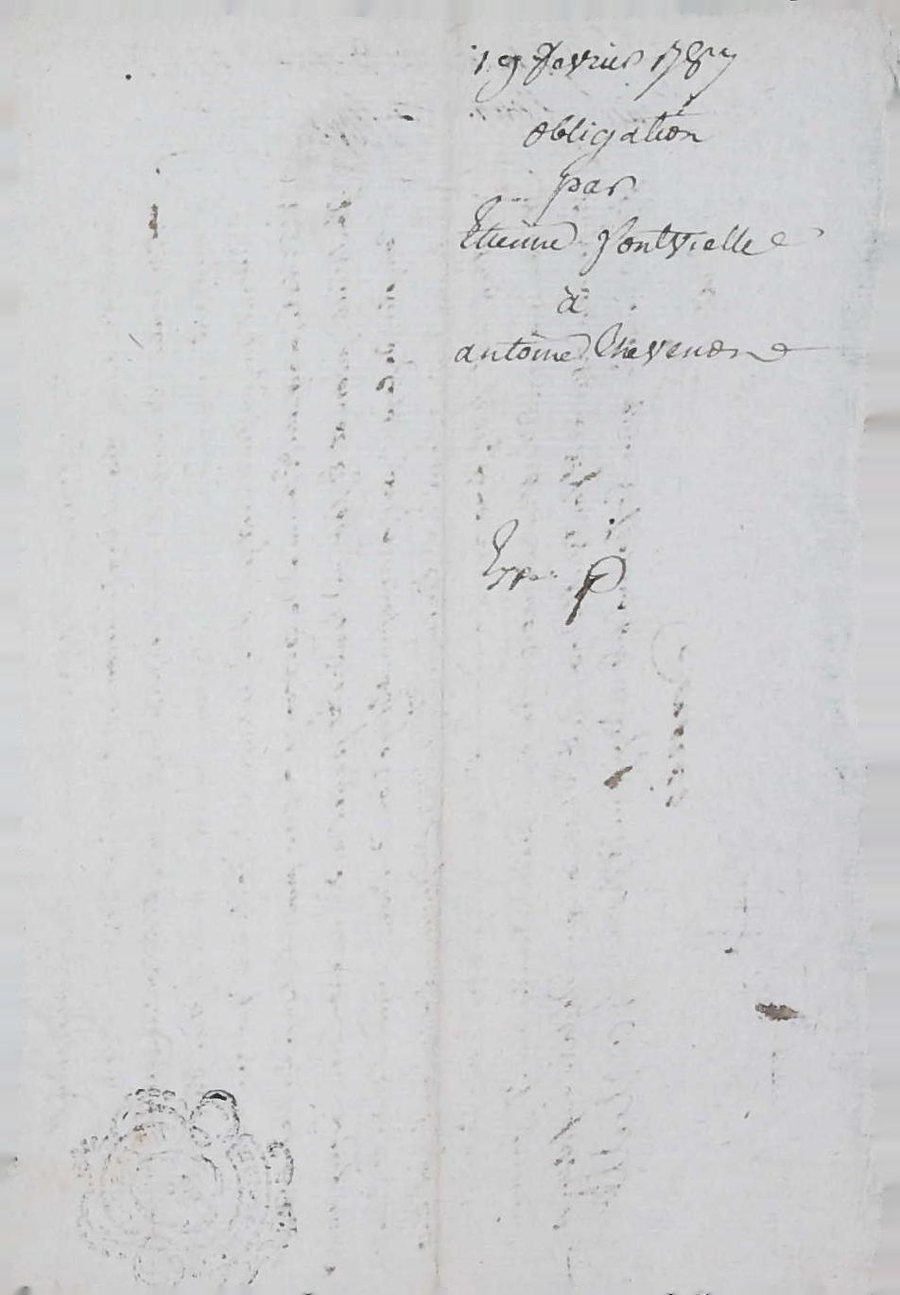 19 fevrier 1787
obligation
par
Etienne fontvielle
à
antoine Chevenon